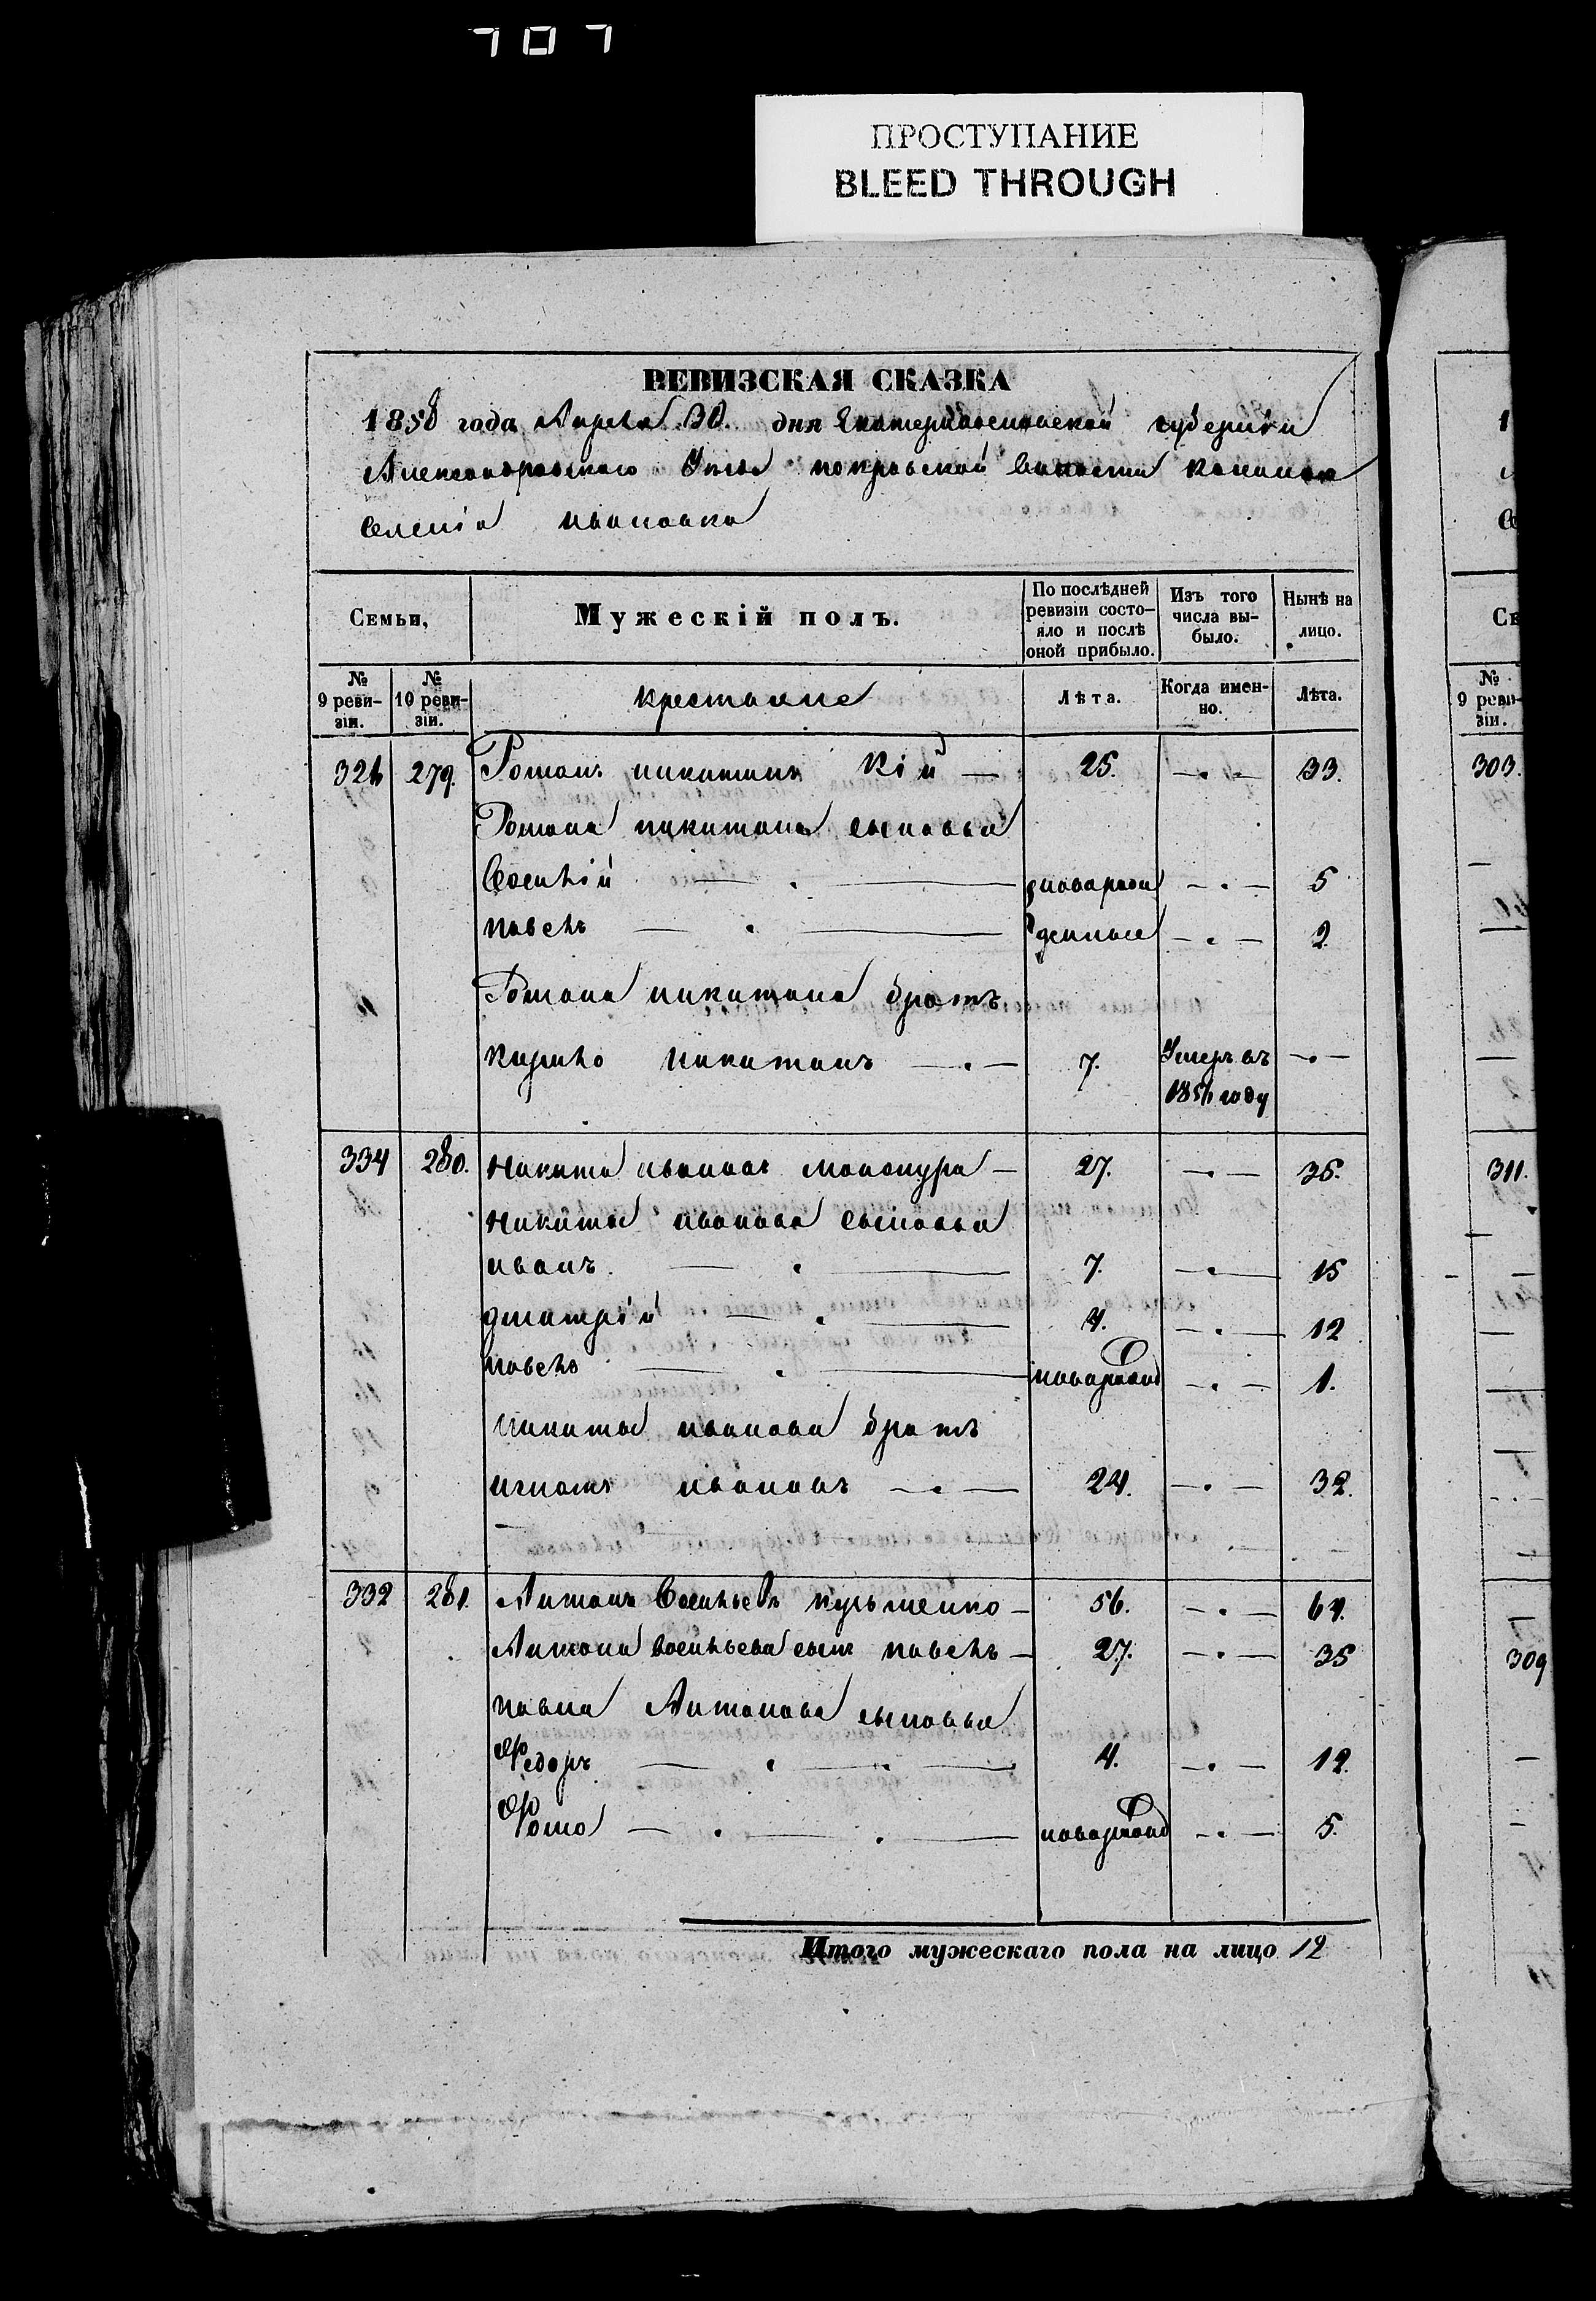 707
ПРОСТУПАНИЕ
BLEED THROUGH
РЕВИЗСКАЯ СКАЗКА
1858 года Апреля 30. дня Екатеринославской губернии
Александровскаго Уезда покровской волости казенно
селенія ивановка
Семьи, Мужескій полъ. По послѣдней ревизіи состояло и послѣ оной прибыло. Изъ того числа выбыло. Нынѣ на лицо.
№ 9 ревизіи. № 10 ревизіи. крестьяне Лѣта. Когда именно. Лѣта.
279. Романъ никитинъ Кій 25. 33.
Романа никитина сыновья
Василій новорож 5
павелъ денные 2
Романа никитина братъ
Кирило никитинъ 7. Умеръ въ
году
334 280. Никита ивановъ 27. 35.
Никиты иванова сыновья
иванъ. 7. 15
дмитрій 4. 12
павелъ новорожд 1.
никиты иванова братъ
игнатъ ивановъ 24. 32.
332 281. Антонъ Васильевъ кузьменко 56. 64.
Антона васильева сынъ павелъ 27. 35
павла Антонова сыновья
Федоръ 4. 12.
Фома новорожд 5.
Итого мужескаго пола на лицо 12
1
С
Се
№ 9 ревизіи.
303.
311.
309